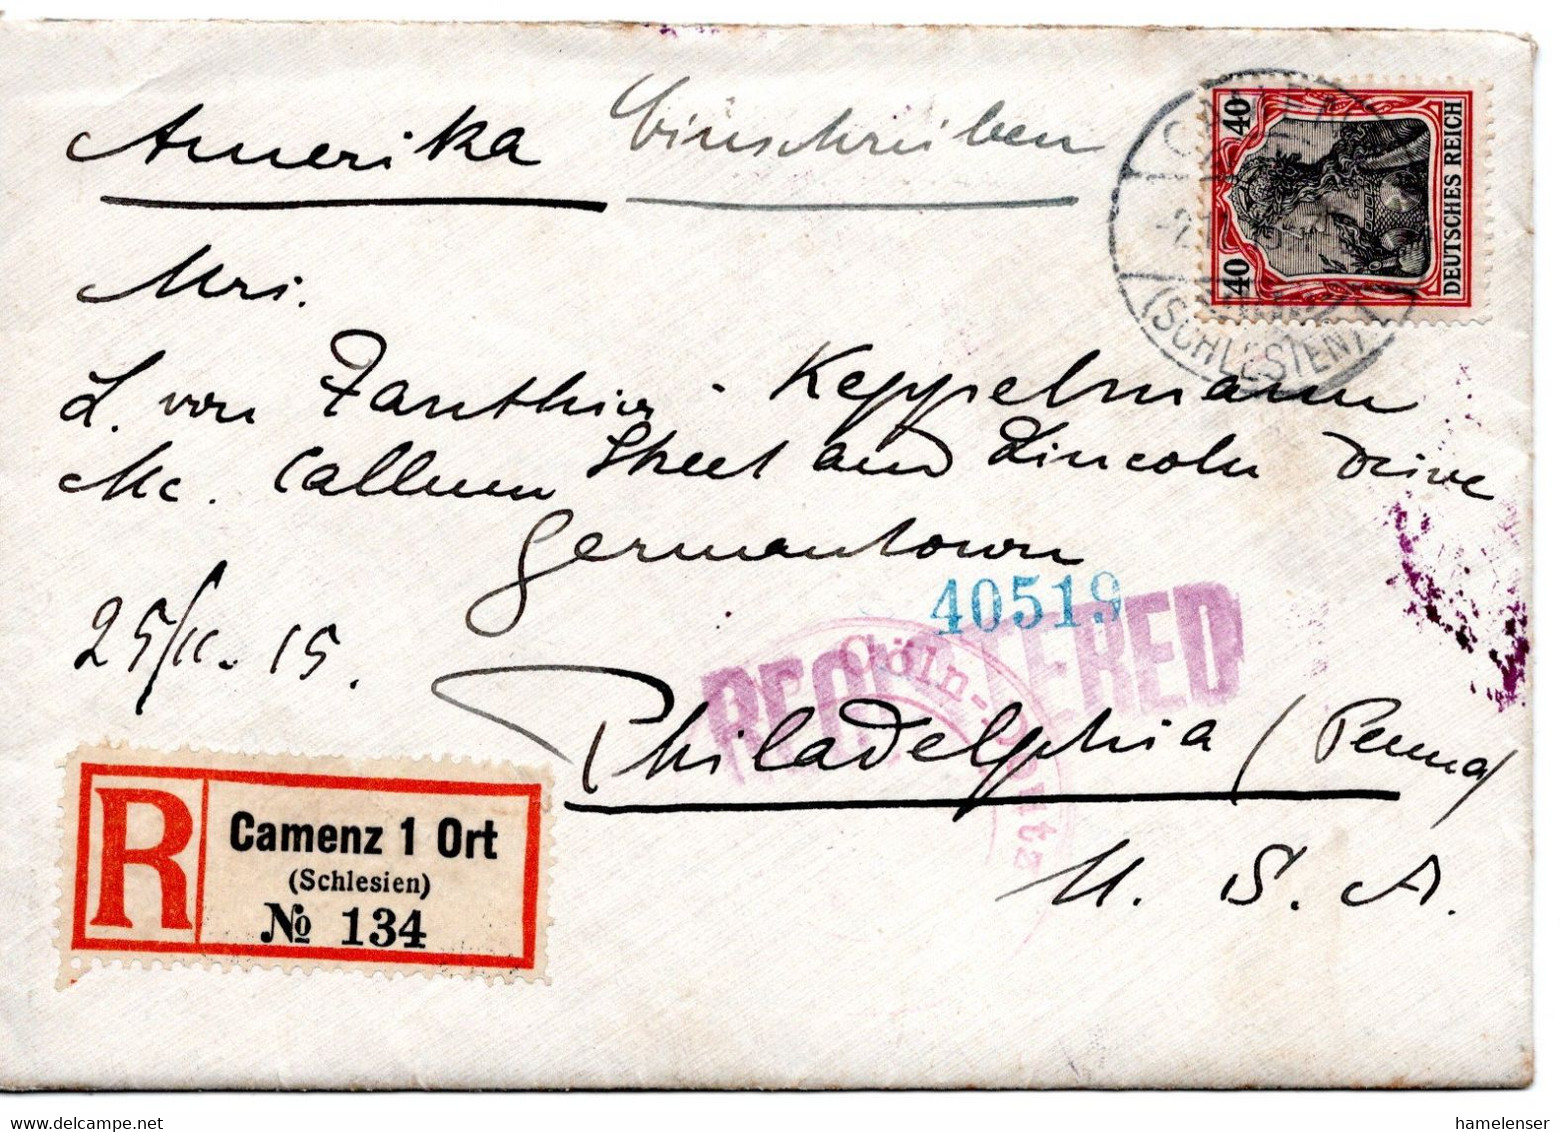 Amerika Einschreiben
40 40
DEUTSCHES REICH
(SCHLESIEN)
Mrs.
L. von Zanthier - Keppelmann
Mc. Callum Street and Lincoln Drive
Germantown
40519
REGISTERED
Cöln-Deutz
25/11. 15.
Philadelphia (Penna)
U. S. A.
R
Camenz 1 Ort
(Schlesien)
№ 134
delcampe.net
hamelenser